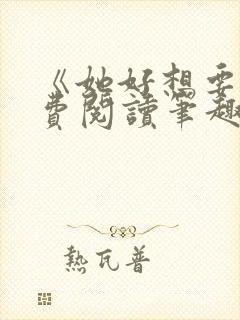 《她好想要
費閱讀筆趣
熱瓦普